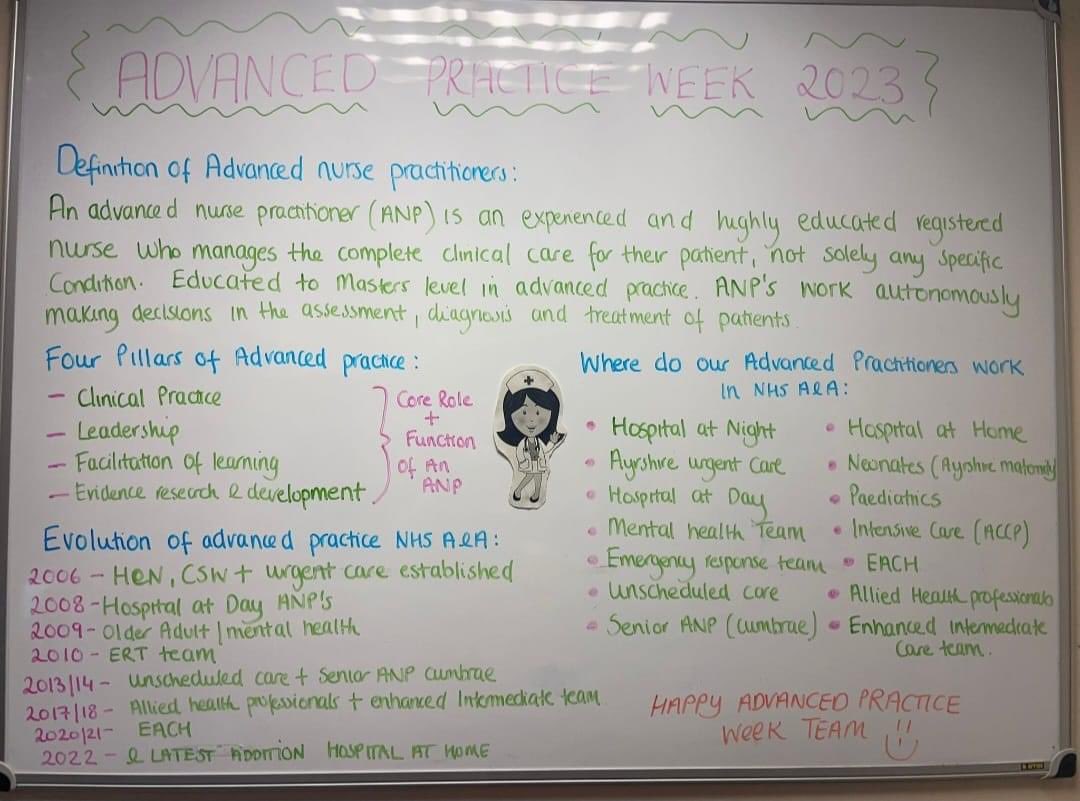 ADVANCED PRACTICE WEEK 2023
Definition of Advanced nurse practitioners:
An advanced nurse practitioner (ANP) is an experienced and highly educated registered
nurse who manages the complete clinical care for their patient, not solely any specific
Condition. Educated to Masters level in advanced practice. ANP's work autonomously
making decisions in the assessment, diagnosis and treatment of patients.
Four Pillars of Advanced practice:
- Clinical Practice
- Leadership
- Facilitation of learning
- Evidence research & development
Core Role
+
Function
of An
ANP
Where do our Advanced Practitioners work
in NHS A&A:
• Hospital at Night
• Ayrshire urgent care
• Hospital at Day
• Mental health Team
• Emergency response team
• unscheduled care
• Senior ANP (cumbrae)
• Hospital at Home
• Neonates (Ayrshire maternity
• Paediatrics
• Intensive Care (ACCP)
• EACH
• Allied Health professionals
• Enhanced intermediate
Care team.
Evolution of advanced practice NHS A&A:
2006 - H@N, CSW + urgent care established
2008 - Hospital at Day ANP's
2009 - Older Adult / mental health
2010 - ERT team
2013/14 - unscheduled care + Senior ANP cumbrae
2017/18 - Allied health professionals + enhanced Intermediate team
2020/21 - EACH
2022 - & LATEST ADDITION HOSPITAL AT HOME
HAPPY ADVANCED PRACTICE
WEEK TEAM !!